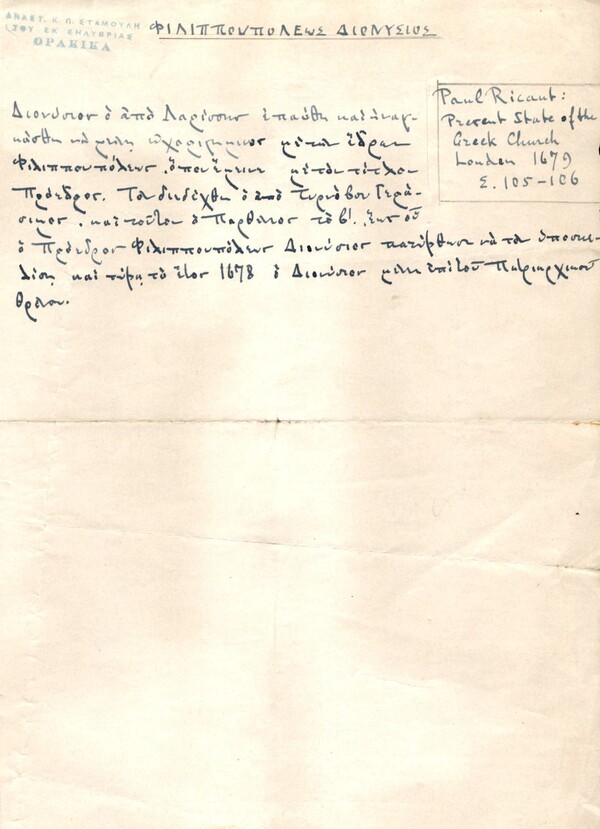 ΑΝΑΣΤ. Κ. Π. ΣΤΑΜΟΥΛΗ
ΤΟΥ ΕΚ ΣΗΛΥΒΡΙΑΣ
ΘΡΑΚΙΚΑ
ΦΙΛΙΠΠΟΥΠΟΛΕΩΣ ΔΙΟΝΥΣΙΟΣ
Paul Ricaut:
Present State of the
Greek Church
London 1679
Σ. 105-106
Διονύσιος ὁ ἀπὸ Λαρίσσης ἐπαύθη καὶ ἠναγ-
κάσθη νὰ μείνῃ εὐχαριστημένος μὲ τὴν ἕδραν
Φιλιππουπόλεως, ὅπου ἔμεινε μὲ τὸν τίτλον
Πρόεδρος. Τὸν διεδέχθη ὁ ἀπὸ Τυρνόβου Γερά-
σιμος, καὶ τοῦτον ὁ Παρθένιος τὸ β'. ἕως οὗ
ὁ Πρόεδρος Φιλιππουπόλεως Διονύσιος κατώρθωσε νὰ τὸν ὑποσκε-
λίσῃ καὶ τώρα τὸ ἔτος 1678 ὁ Διονύσιος μένει ἐπὶ τοῦ Πατριαρχικοῦ
θρόνου.